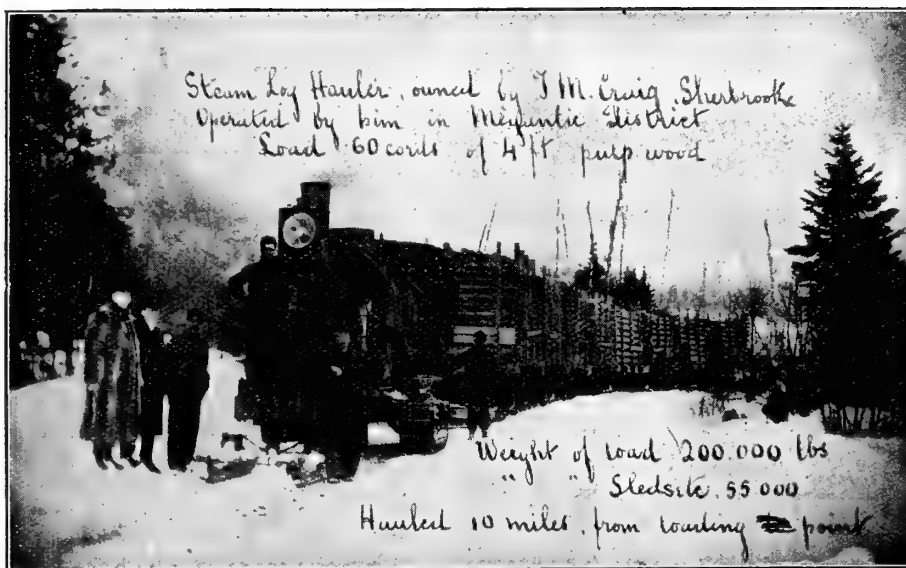 Steam Log Hauler, owned by J M. Craig, Sherbrooke
Operated by him in Megantic District
Load 60 cords of 4 ft pulp wood
Weight of load 200.000 lbs
" " Sleds etc. 55 000
Hauled 10 miles, from loading point